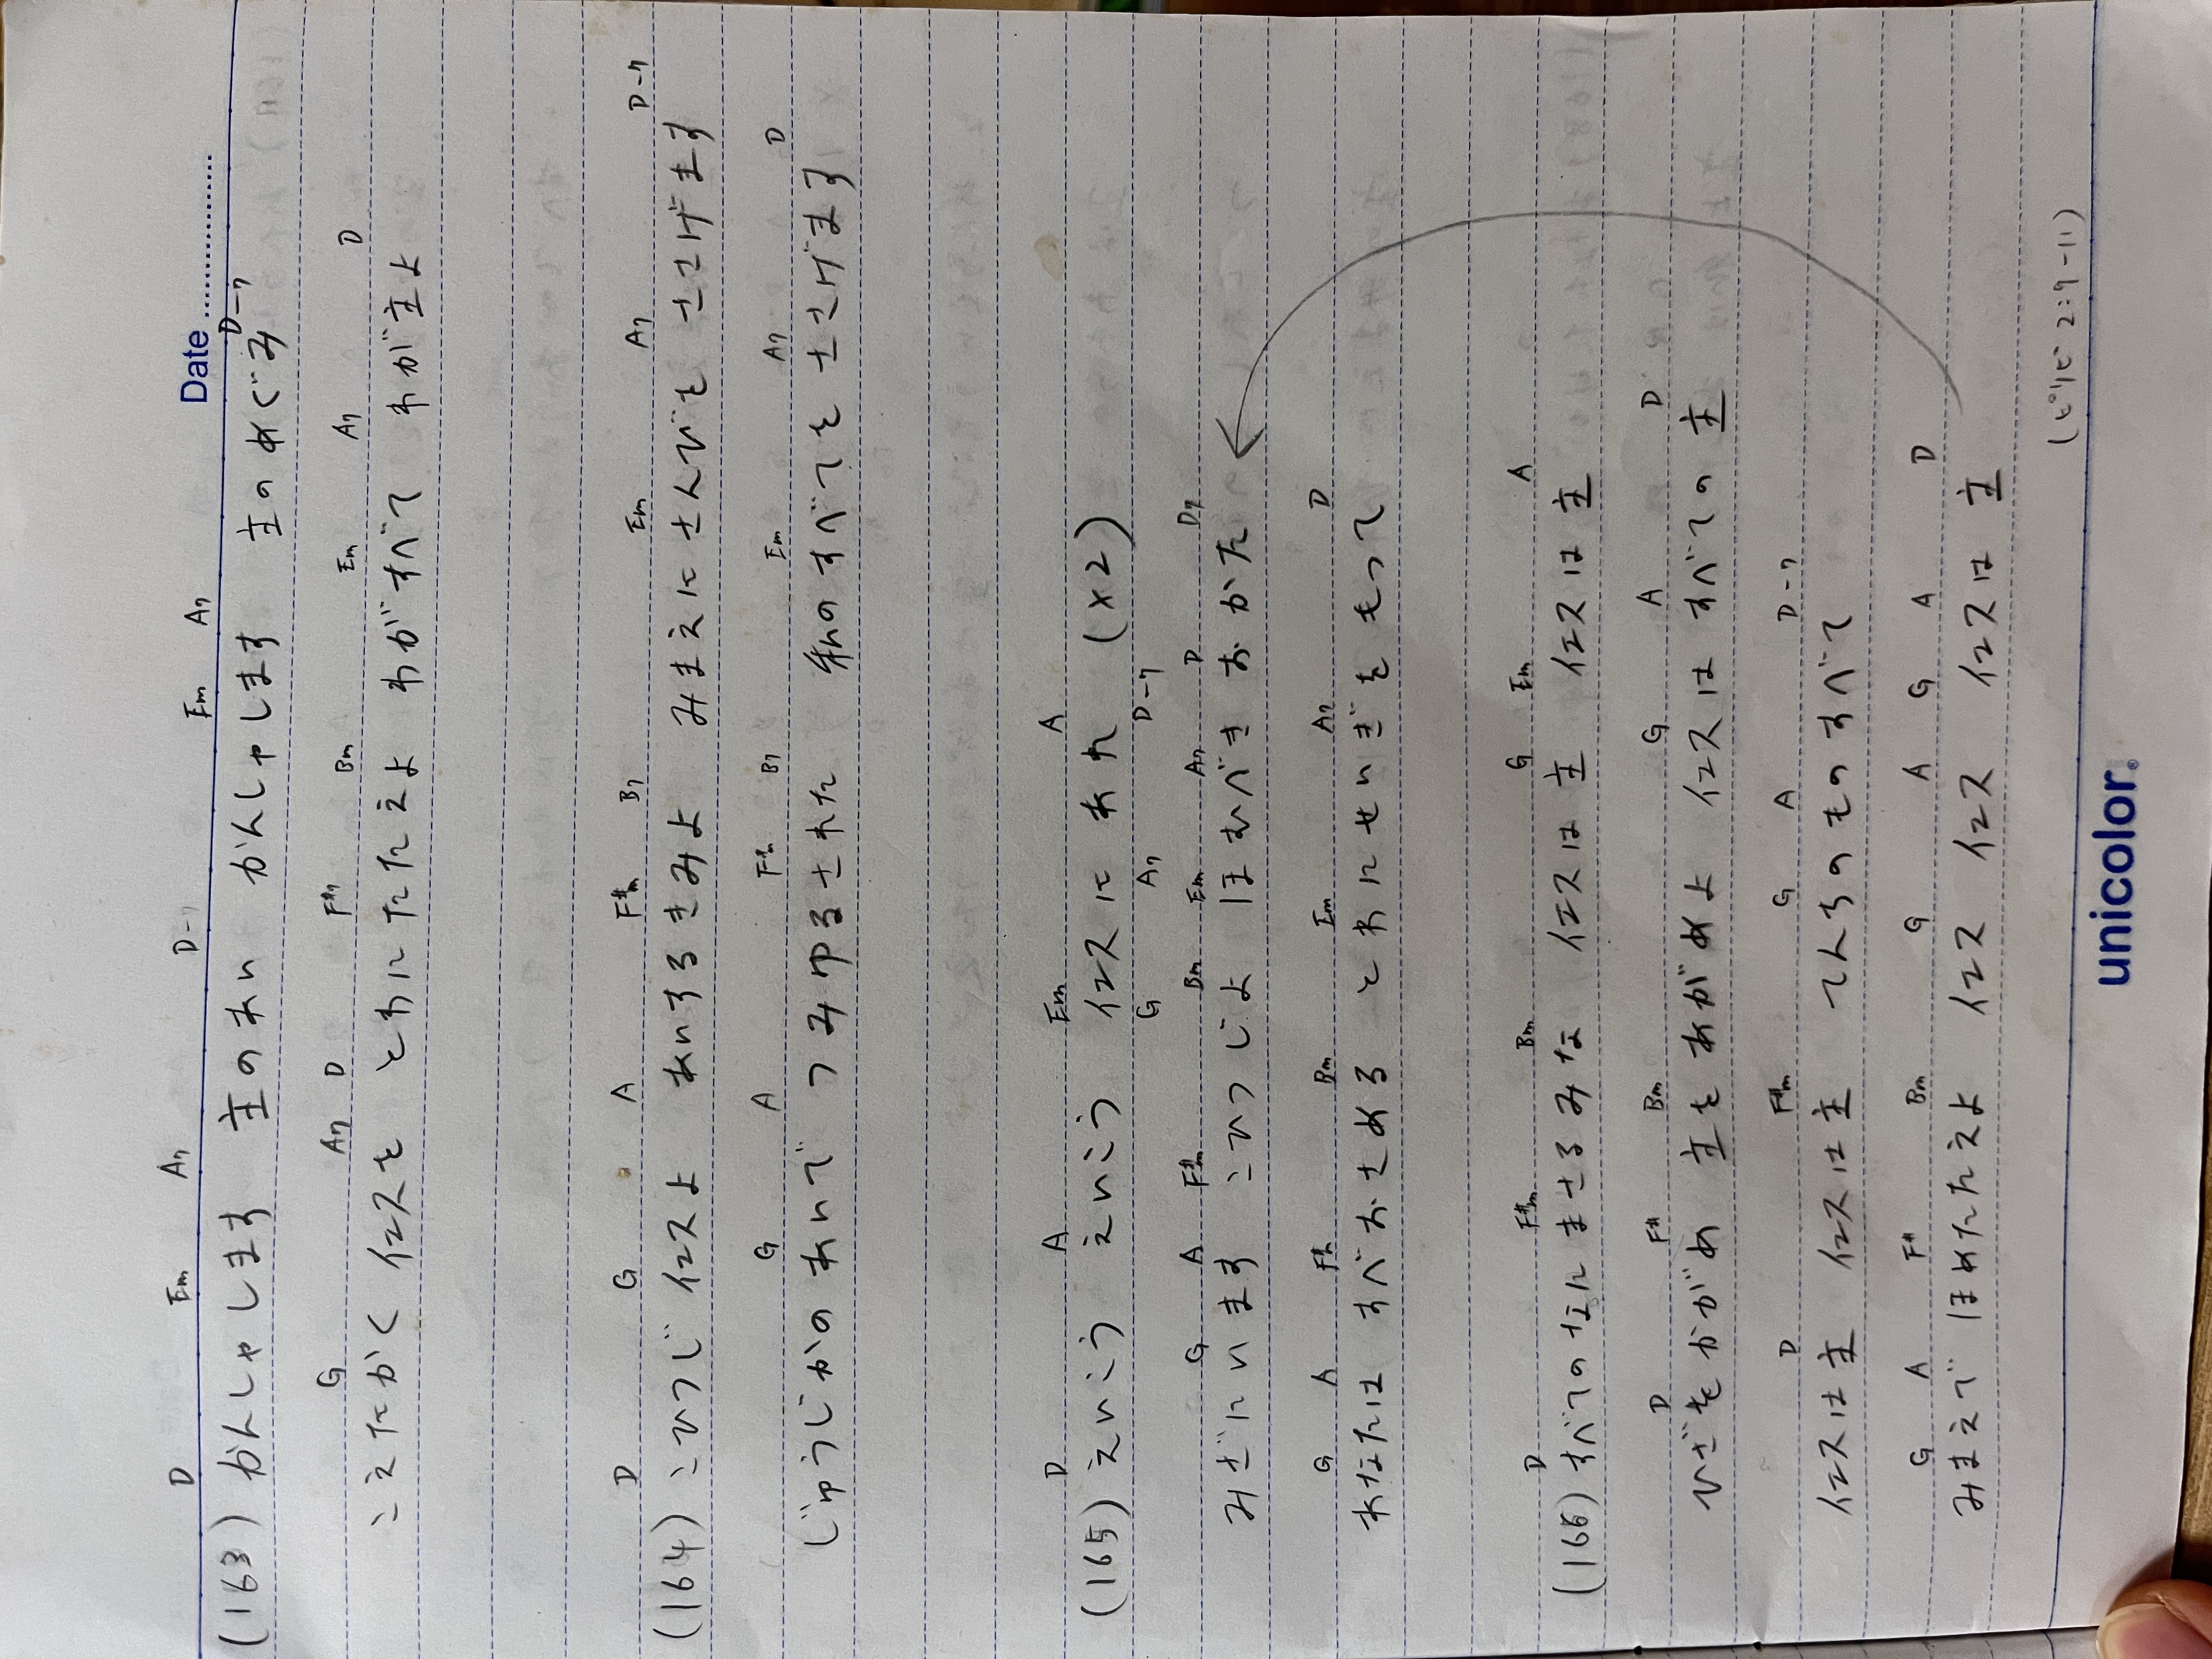 Date
D Em A7 D-7 Em Em A7 D-7
(163) かんしゃします 主のあい かんしゃします 主のめぐみ
G A7 D F#7 Bm Em A7 D
こえたかく イエスを とわにたたえよ わがすべて わが主よ
D G A F#m B7 Em A7 D-7
(164) こひつじ イエスよ あいするきみよ みまえにさんびを ささげます
G A F#m B7 Em A7 D
じゅうじかの あいで つみゆるされた 私のすべてを ささげます
D A Em A
(165) えいこう えいこう イエスにあれ (×2)
G A7 D-7
G A F#m Bm Em A7 D D7
みざにいます こひつじよ ほむべき おかた
G A F#m Bm Em A7 D
あなたは すべおさめる とわにせいぎを もって
D F#m Bm G Em A
(166) すべてのなにまさるみな イエスは主 イエスは主
D F# Bm G A D
ひざをかがめ 主をあがめよ イエスは すべての主
D F#m G A D-7
イエスは主 イエスは主 てんちのものすべて
G A F# Bm G A G A D
みまえで ほめたたえよ イエス イエス イエスは主
(ピリピ 2:9-11)
unicolor®